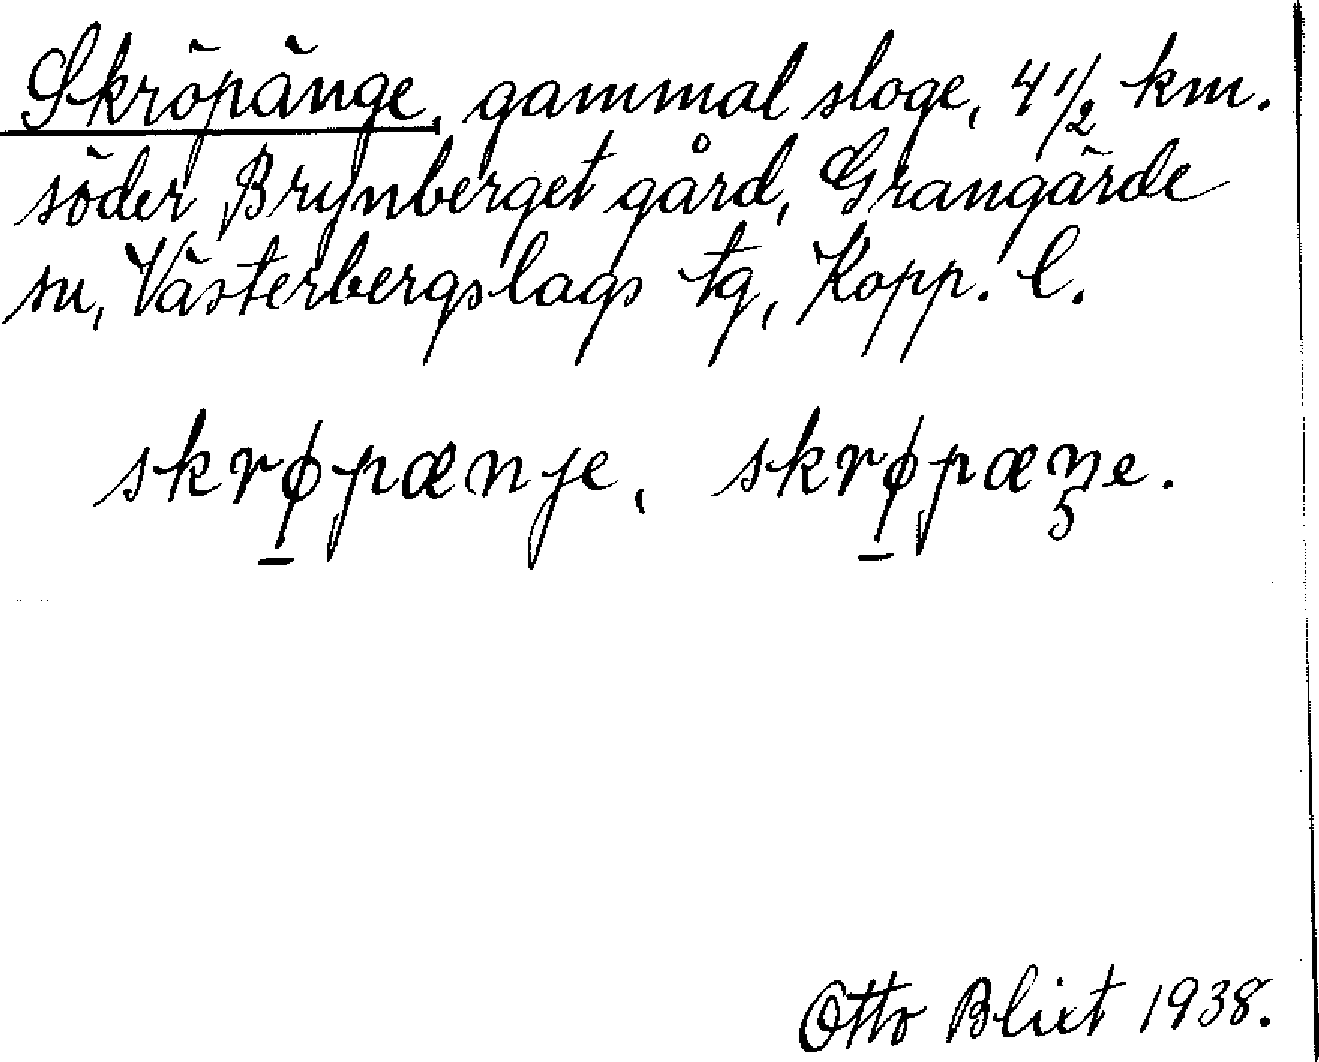 Skröpänge, gammal sloge, 4 1/2 km.
söder Brynberget gård, Grangärde
sn, Västerbergslags tg, Kopp. l.
skrø̱pænje, skrø̱pæŋe.
Otto Blixt 1938.